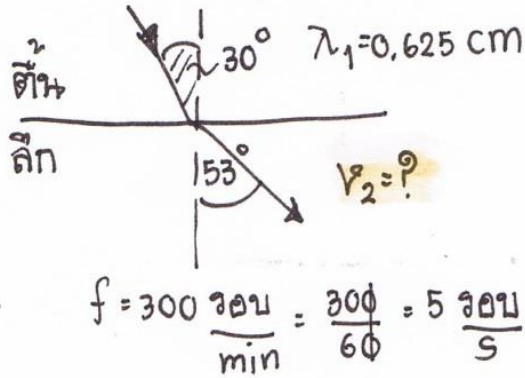 30° λ₁=0.625 cm
ตื้น
ลึก
53° V₂=?
f = 300 รอบ/min = 300/60 = 5 รอบ/s